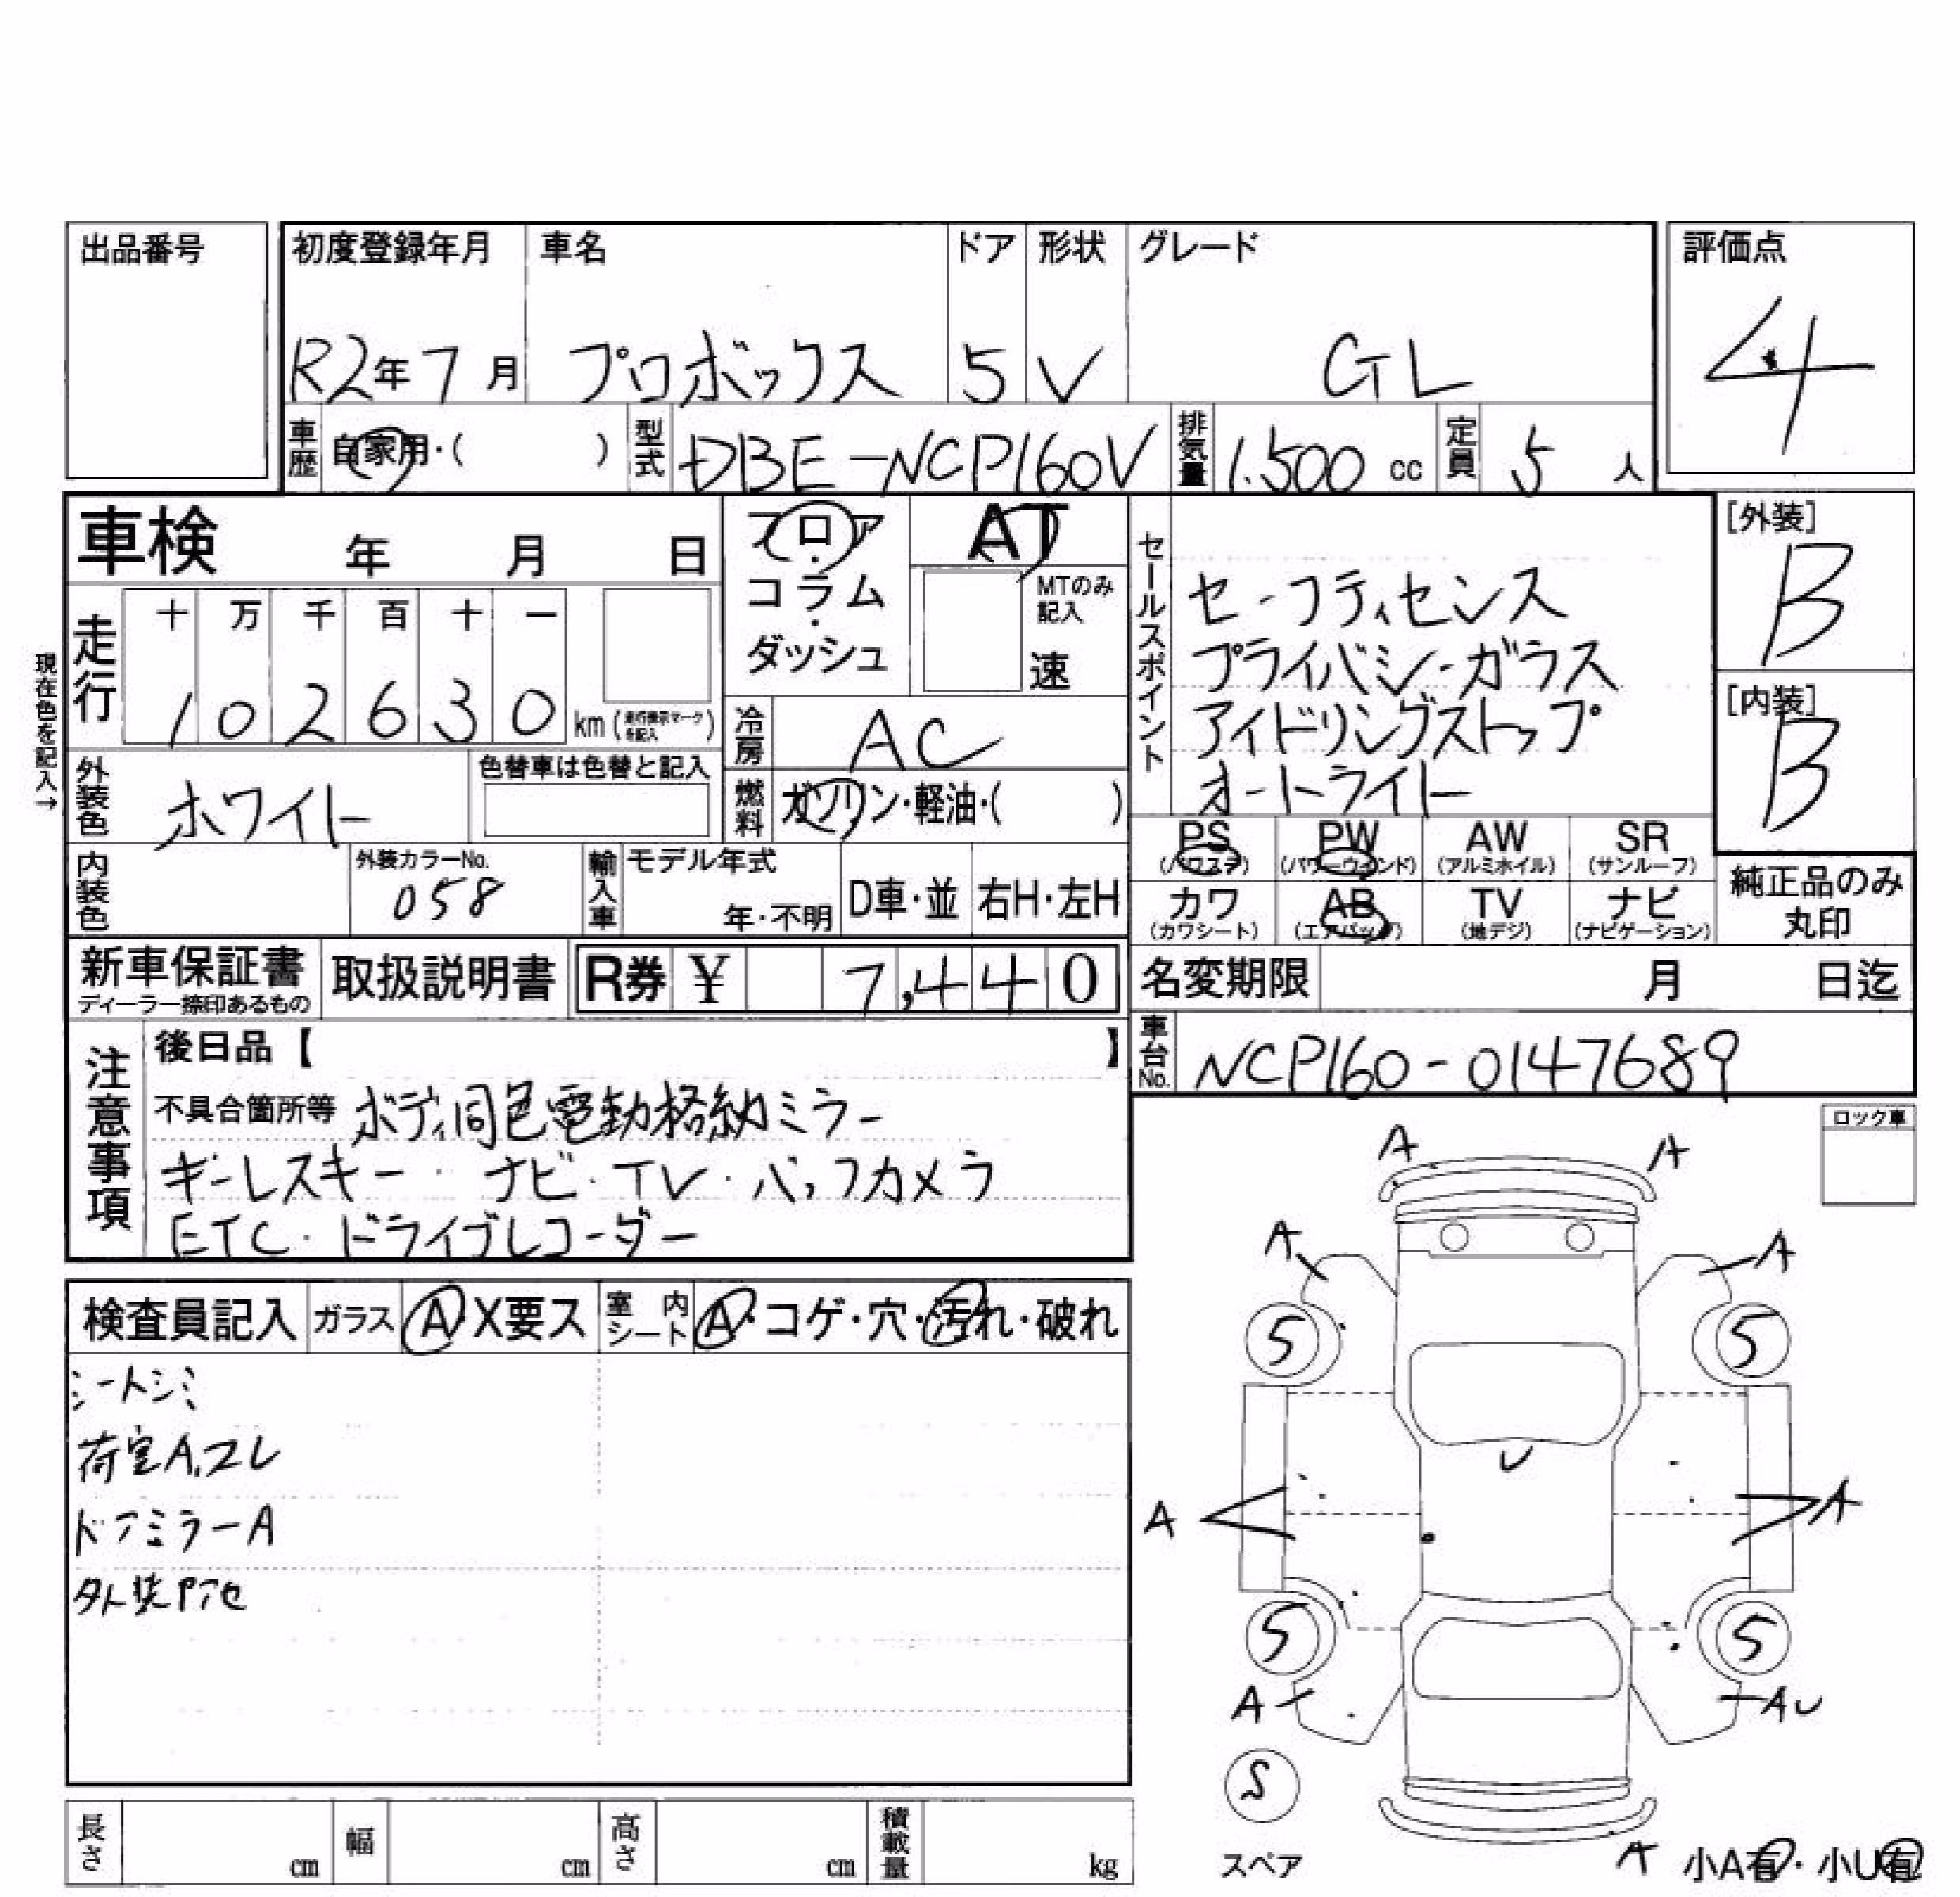 出品番号
初度登録年月 車名 ドア 形状 グレード 評価点
R2年7月 プロボックス 5 V GL 4
車歴 自家用・( ) 型式 DBE-NCP160V 排気量 1.500 cc 定員 5 人
車検 年 月 日
フロア・コラム・ダッシュ
AT
MTのみ記入
速
セールスポイント
セーフティセンス
プライバシーガラス
アイドリングストップ
オートライト
[外装]
B
[内装]
B
現在色を記入→
走行 十 万 千 百 十 一
1 0 2 6 3 0 km (走行表示マークを記入)
冷房 AC
外装色 ホワイト 色替車は色替と記入
燃料 ガソリン・軽油・( )
PS (パワステ) PW (パワーウインド) AW (アルミホイル) SR (サンルーフ)
カワ (カワシート) AB (エアバッグ) TV (地デジ) ナビ (ナビゲーション)
純正品のみ丸印
内装色 外装カラーNo. 058 輸入車 モデル年式 年・不明 D車・並 右H・左H
新車保証書 ディーラー捺印あるもの 取扱説明書 R券 ¥ 7,440
名変期限 月 日迄
車台No. NCP160-0147689
注意事項
後日品【 】
不具合箇所等 ボディ同色電動格納ミラー
キーレスキー・ナビ・TV・バックカメラ
ETC・ドライブレコーダー
ロック車
検査員記入 ガラス A X要ス 室内シート A・コゲ・穴・汚れ・破れ
シートシミ
荷室A、コレ
ドアミラーA
A A
A A
S S
U
A A
S S
A AU
S
スペア
A 小A有・小U有
長さ cm 幅 cm 高さ cm 積載量 kg